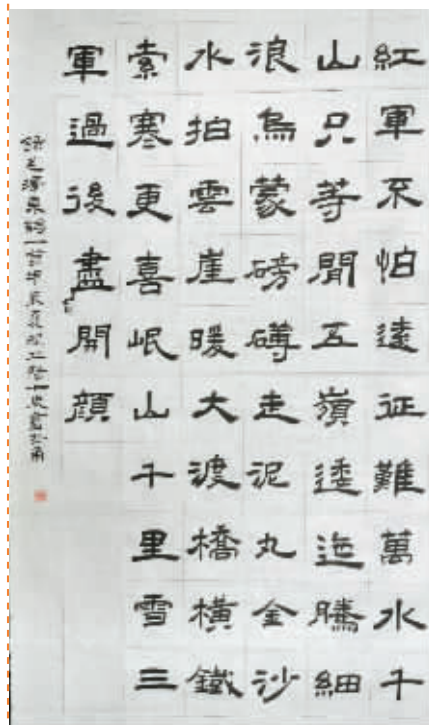 紅軍不怕遠征難萬水千
山只等閒五嶺逶迤騰細
浪烏蒙磅礴走泥丸金沙
水拍雲崖暖大渡橋橫鐵
索寒更喜岷山千里雪三
軍過後盡開顏
錄毛澤東